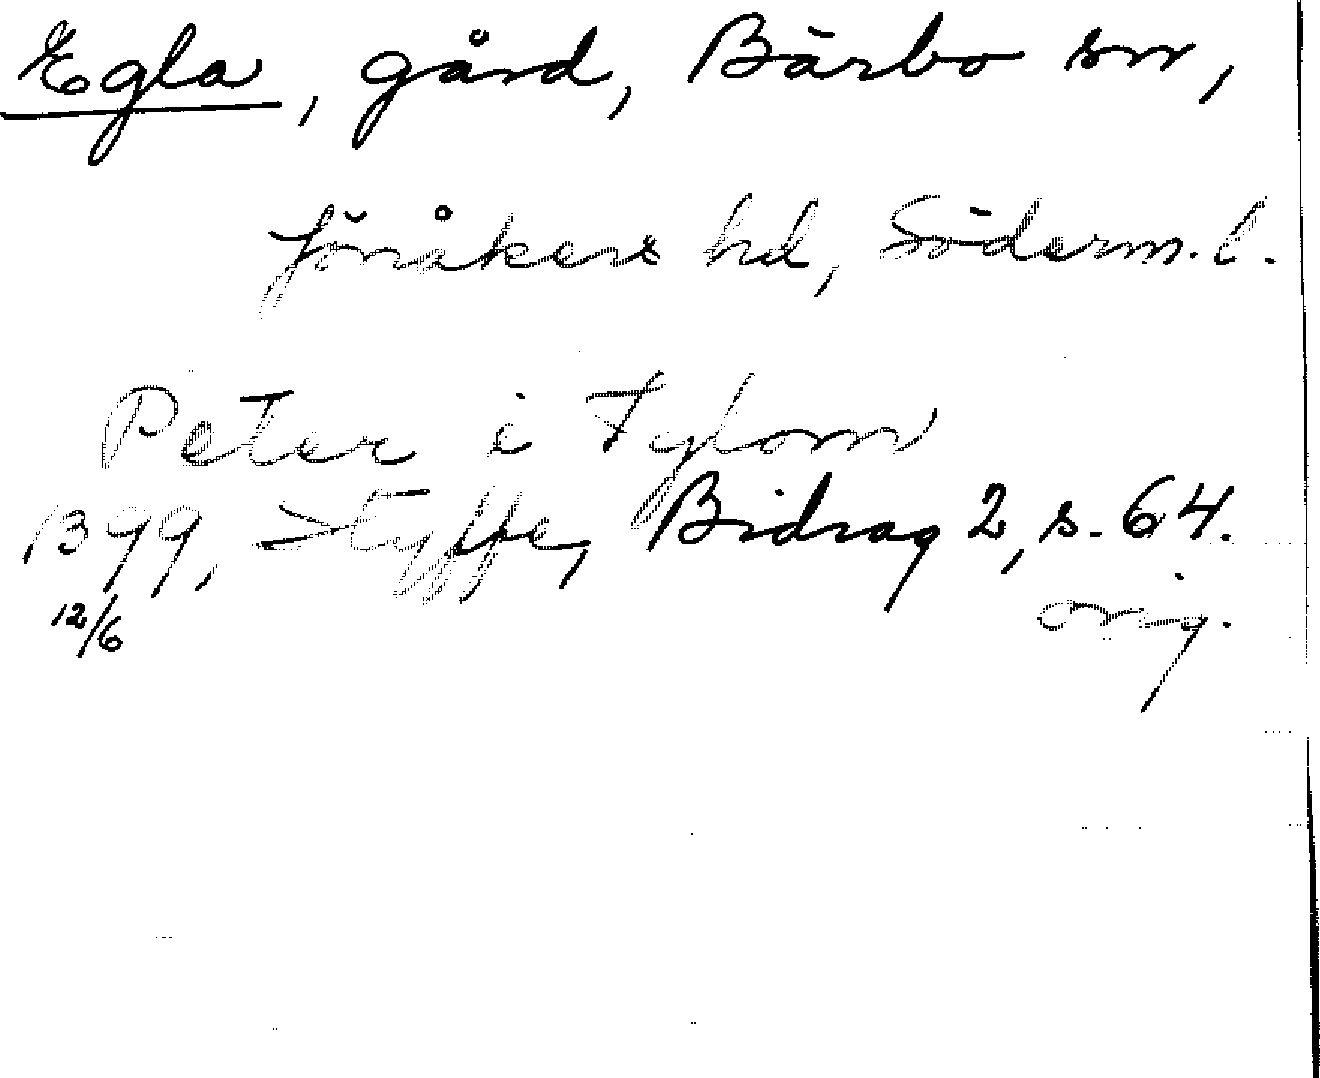 Egla, gård, Bärbo sn,
Jönåkers hd, Söderm. l.
Peter i Fylom
1399, Styffe, Bidrag 2, s. 64.
12/6 orig.